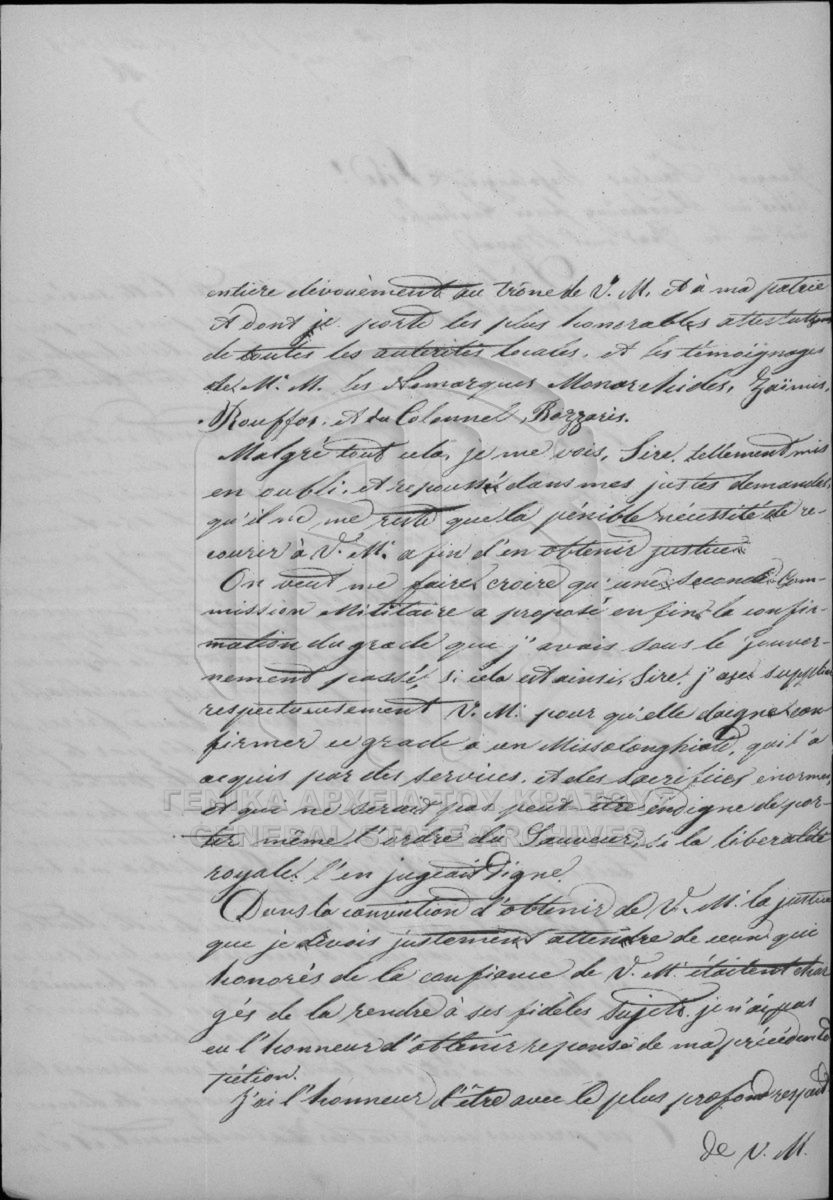 entière dévouement au trône de V. M. et à ma patrie
et dont je porte les plus honorables attestations
de toutes les autorités locales, et les témoignages
de M. M. les Nomarques Monarchides, Zaïmis,
Rouffos, et du Colonnel Bozzaris.
Malgré tout cela, je me vois, Sire, tellement mis
en oubli, et repoussé dans mes justes demandes,
qu'il ne me reste que la pénible nécessité de re-
courir à V. M. a fin d'en obtenir justice
On veut me faire croire qu'une seconde Com-
mission Militaire a proposé enfin la confir-
mation du grade que j'avais sous le gouver-
nement passé, si cela est ainsi, Sire, j'ose supplier
respectueusement V. M. pour qu'elle daigne con
firmer ce grade a un Missolonghiote, qui l'a
acquis par des services, et des sacrifices énormes,
et qui ne serait pas peut-être indigne de por-
ter même l'ordre du Sauveur, si la liberalité
royale l'en jugeait digne
Dans la conviction d'obtenir de V. M. la justice
que je devois justement attendre de ceux qui
honorés de la confiance de V. M. étaitent char
gés de la rendre à ses fidèles sujets, je n'ai pas
eu l'honneur d'obtenir reponse de ma précédente
pétion.
J'ai l'honneur d'être avec le plus profond respect
de V. M.
ΓΕΝΙΚΑ ΑΡΧΕΙΑ ΤΟΥ ΚΡΑΤΟΥΣ
GENERAL STATE ARCHIVES